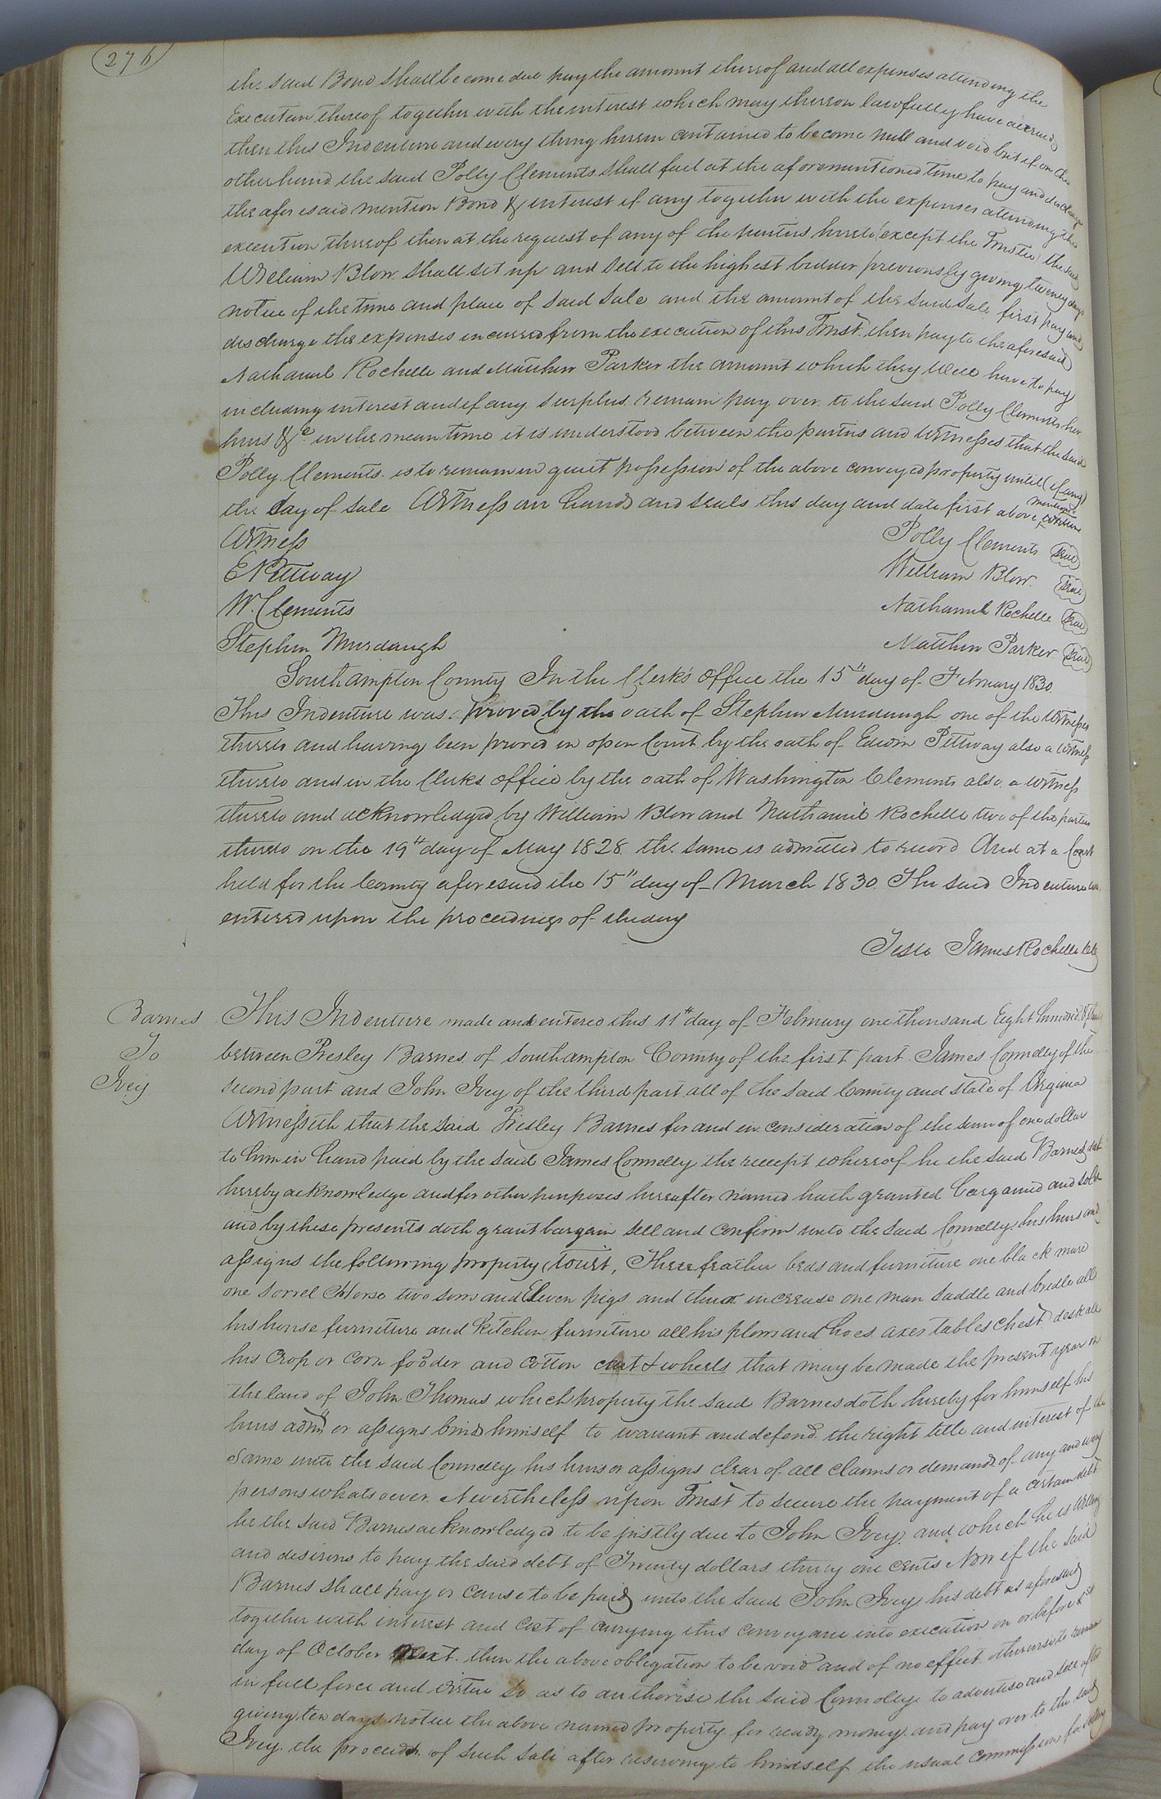 276
the said Bond shall become due pay the amount thereof and all expenses attending the
Execution thereof together with the interest which may thereon lawfully have accrued
then this Indenture and every thing herein contained to become null and void but if on the
other hand the said Polly Clements shall fail at the aforementioned time to pay and discharge
the aforesaid mention Bond & interest if any together with the expenses attending the
execution thereof then at the request of any of the parties hereto except the Trustee the said
William Blow shall set up and sell to the highest bidder previously giving twenty days
notice of the time and place of said sale and the amount of the said sale first pay and
discharge the expenses incurred from the execution of this Trust then pay to the aforesaid
Nathaniel Rochelle and Matthew Parker the amount which they will have to pay
including interest and if any surplus remain pay over to the said Polly Clements her
heirs &c in the mean time it is understood between the parties and witnesses that the said
Polly Clements is to remain in quiet possession of the above conveyed property until (if any)
the day of sale Witness our hands and seals this day and date first above mentioned written
Witness Polly Clements Seal
E Pittway William Blow Seal
W. Clements Nathaniel Rochelle Seal
Stephen Murdaugh Matthew Parker Seal
Southampton County In the Clerk's Office the 15th day of February 1830
This Indenture was proved by the oath of Stephen Murdaugh one of the witnesses
thereto and having been proved in open Court by the oath of Edwin Pittway also a witness
thereto and in the Clerks office by the oath of Washington Clements also a witness
thereto and acknowledged by William Blow and Nathaniel Rochelle two of the parties
thereto on the 19th day of May 1828 the same is admitted to record And at a Court
held for the County aforesaid the 15th day of March 1830 The said Indenture was
entered upon the proceedings of the day
Teste James Rochelle Clk
Barnes
To
Ivey
This Indenture made and entered this 11th day of February one thousand Eight hundred &
between Presley Barnes of Southampton County of the first part James Connelly of the
second part and John Ivey of the third part all of the said County and state of Virginia
Witnesseth that the said Presley Barnes for and in consideration of the sum of one dollar
to him in hand paid by the said James Connelly the receipt whereof he the said Barnes doth
hereby acknowledge and for other purposes hereafter named hath granted bargained and sold
and by these presents doth grant bargain sell and confirm unto the said Connelly his heirs and
assigns the following property towit, Three feather beds and furniture one black mare
one sorrel Horse two sows and Eleven pigs and their increase one man saddle and bridle all
his house furniture and kitchen furniture all his plows and hoes axes tables chest desk all
his crop or corn fodder and cotton cart & wheels that may be made the present year on
the land of John Thomas which property the said Barnes doth hereby for himself his
heirs admr or assigns bind himself to warrant and defend the right title and interest of the
same unto the said Connelly his heirs or assigns clear of all claims or demands of any and every
persons whatsoever. Nevertheless upon Trust to secure the payment of a certain debt
he the said Barnes acknowledged to be justly due to John Ivey and which he is willing
and desirous to pay the said debt of Twenty dollars thirty one cents Now if the said
Barnes shall pay or cause to be paid unto the said John Ivey his debt as aforesaid
together with interest and cost of carrying this conveyance into execution on or before 1st
day of October next then the above obligation to be void and of no effect otherwise to remain
in full force and virtue so as to authorise the said Connolly to advertise and sell after
giving ten days notice the above named property for ready money and pay over to the said
Ivey the proceeds of such sale after reserving to himself the usual commission for selling